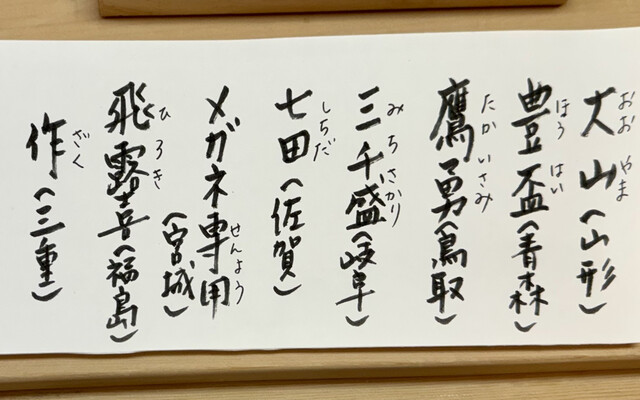 大山(山形)
おおやま
豊盃(青森)
ほうはい
鷹勇(鳥取)
たかいさみ
三千盛(岐阜)
みちさかり
七田(佐賀)
しちだ
メガネ専用
せんよう
(宮城)
飛露喜(福島)
ひろき
作(三重)
ざく